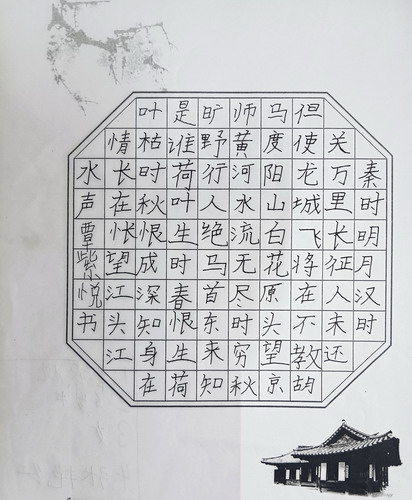 秦时明月汉时
关万里长征人未还
但使龙城飞将在不教胡
马度阳山白花原头望京
师黄河水流无尽时穷秋
旷野行人绝马首东来知
是谁荷叶生时春恨生荷
叶枯时秋恨成深知身在
情长在怅望江头江
水声覃紫悦书